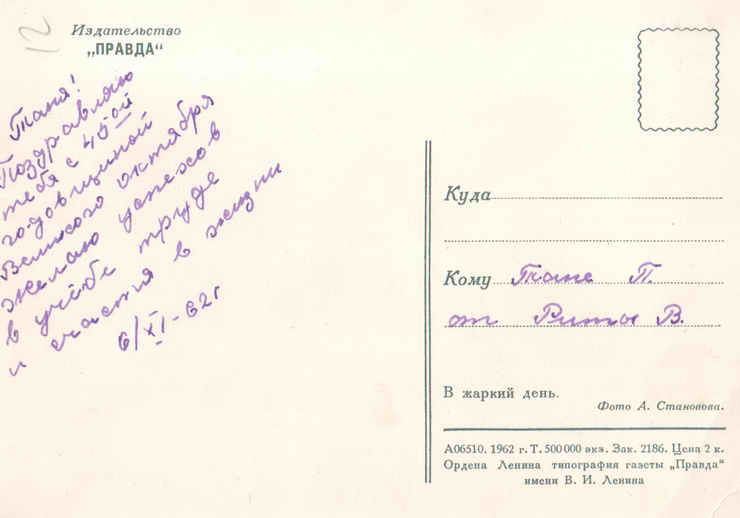 12
Издательство
„ПРАВДА“
Таня!
Поздравляю
тебя с 45ой
годовщиной
Великого октября
желаю успехов
в учёбе труде
и счастья в жизни
6/XI-62г
Куда
Кому Тане П.
от Риты В.
В жаркий день.
Фото А. Становова.
А06510. 1962 г. Т. 500 000 экз. Зак. 2186. Цена 2 к.
Ордена Ленина типография газеты „Правда“
имени В. И. Ленина